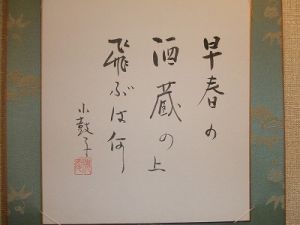 早春の
酒蔵の上
飛ぶは何
小鼓子